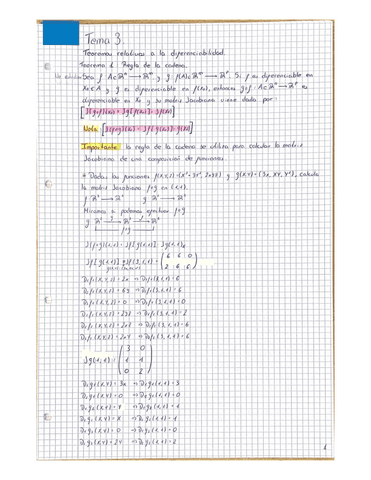 Tema 3
Teoremas relativos a la diferenciabilidad.
Teorema 1. Regla de la cadena.
Sea f: A⊂ℝⁿ → ℝᵐ y g: f(A)⊂ℝᵐ → ℝᵖ. Si f es diferenciable en
x₀∈A y g es diferenciable en f(x₀), entonces g∘f: A⊂ℝⁿ → ℝᵖ es
diferenciable en x₀ y su matriz Jacobiana viene dada por:
J(g∘f)(x₀) = Jg[f(x₀)] · Jf(x₀)
Nota: J(f∘g)(x₀) = Jf[g(x₀)] · Jg(x₀)
Importante: la regla de la cadena se utiliza para calcular la matriz
Jacobiana de una composición de funciones.
* Dadas las funciones f(x,y,z) = (x²+3y², 2xyz) y g(x,y) = (3x, xy, y²), calcula
la matriz Jacobiana f∘g en (1,1).
f: ℝ³ → ℝ² g: ℝ² → ℝ³
Miramos si podemos efectuar f∘g
g: ℝ² → ℝ³ → ℝ²
f∘g
J(f∘g)(1,1) = Jf[g(1,1)] · Jg(1,1)
Jf[g(1,1)] = Jf(3,1,1) = (6 6 0
2 6 6)
D₁f₁(x,y,z) = 2x → D₁f₁(3,1,1) = 6
D₂f₁(x,y,z) = 6y → D₂f₁(3,1,1) = 6
D₃f₁(x,y,z) = 0 → D₃f₁(3,1,1) = 0
D₁f₂(x,y,z) = 2yz → D₁f₂(3,1,1) = 2
D₂f₂(x,y,z) = 2xz → D₂f₂(3,1,1) = 6
D₃f₂(x,y,z) = 2xy → D₃f₂(3,1,1) = 6
Jg(1,1) = (3 0
1 1
0 2)
D₁g₁(x,y) = 3x → D₁g₁(1,1) = 3
D₂g₁(x,y) = 0 → D₂g₁(1,1) = 0
D₁g₂(x,y) = y → D₁g₂(1,1) = 1
D₂g₂(x,y) = x → D₂g₂(1,1) = 1
D₁g₃(x,y) = 0 → D₁g₃(1,1) = 0
D₂g₃(x,y) = 2y → D₂g₃(1,1) = 2